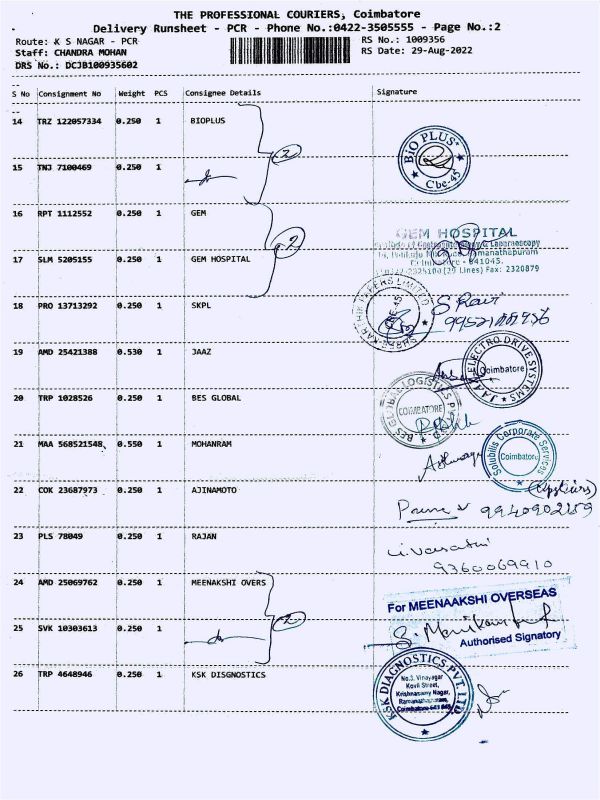 THE PROFESSIONAL COURIERS, Coimbatore
Delivery Runsheet - PCR - Phone No.:0422-3505555 - Page No.:2
Route: K S NAGAR - PCR RS No.: 1009356
Staff: CHANDRA MOHAN RS Date: 29-Aug-2022
DRS No.: DCJB100935602
S No Consignment No Weight PCS Consignee Details Signature
14 TRZ 122057334 0.250 1 BIOPLUS
2
BIO PLUS
Cbe-45
15 TNJ 7100469 0.250 1
16 RPT 1112552 0.250 1 GEM
2
GEM HOSPITAL
Ramanathapuram
Coimbatore - 641045.
(29 Lines) Fax: 2320879
17 SLM 5205155 0.250 1 GEM HOSPITAL
18 PRO 13713292 0.250 1 SKPL
CBE-45
S Ravi
19 AMD 25421388 0.530 1 JAAZ
JAAZ ELECTRO DRIVE SYSTEMS
Coimbatore
20 TRP 1028526 0.250 1 BES GLOBAL
BES GLOBAL LOGISTICS
COIMBATORE
21 MAA 568521548 0.550 1 MOHANRAM
Solubilis Corporate Services
Coimbatore
22 COK 23687973 0.250 1 AJINAMOTO
23 PLS 78049 0.250 1 RAJAN
9360069910
24 AMD 25069762 0.250 1 MEENAKSHI OVERS
2
For MEENAAKSHI OVERSEAS
Authorised Signatory
25 SVK 10303613 0.250 1
26 TRP 4648946 0.250 1 KSK DISGNOSTICS
KSK DIAGNOSTICS PVT. LTD.
No.3, Vinayagar
Kovil Street,
Krishnasamy Nagar,
Ramanathapuram,
Coimbatore-641 045